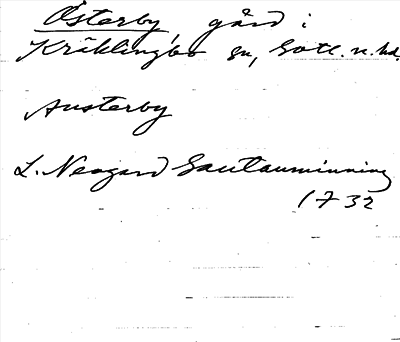 Österby, gård i
Kräklingbo sn, Gotl. n. hd.
Austerby
L. Neogard Gautauminning
1732